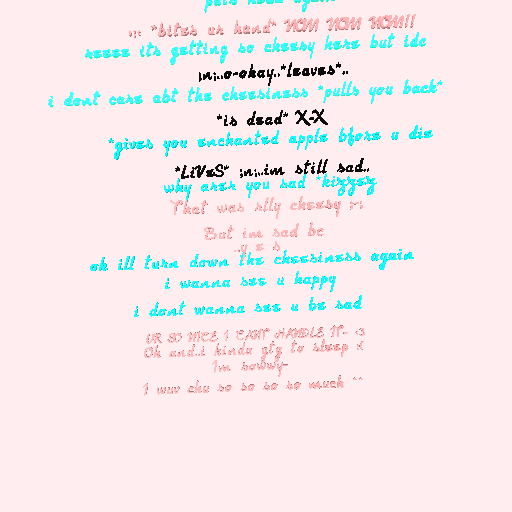 puts head again
;n; *bites ur hand* NOM NOM NOM!!
seeee its getting so cheesy here but idc
;n;..o-okay..*leaves*..
i dont care abt the cheesiness *pulls you back*
*is dead* X-X
*gives you enchanted apple bfore u die
*LiVeS* ;n;..im still sad..
why arer you sad *kizzez
That was rlly cheesy ;-;
But im sad bc
..y e s
ok ill turn down the cheesiness again
i wanna see u happy
i dont wanna see u be sad
UR SO NICE I CANT HANDLE IT- <3
Oh and..i kinda gtg to sleep :<
Im sowwy-
I wuv chu so so so so much ^^